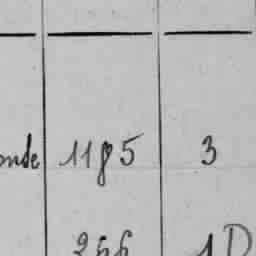 onde 1185 3
256 1D